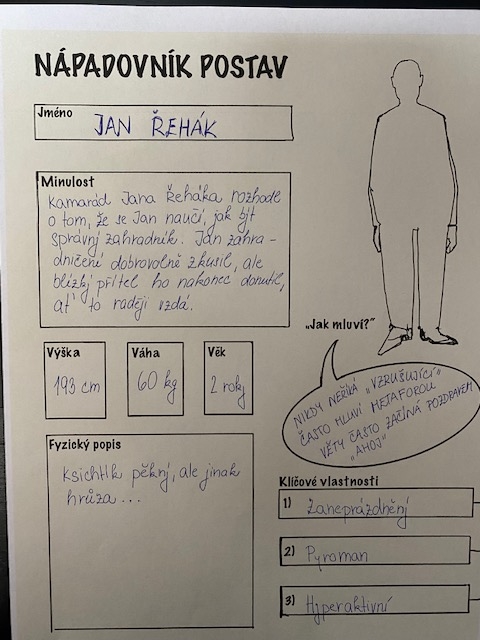 NÁPADOVNÍK POSTAV
Jméno
JAN ŘEHÁK
Minulost
Kamarád Jana Řeháka rozhodl
o tom, že se Jan naučí, jak být
správný zahradník. Jan zahra-
dničení dobrovolně zkusil, ale
blízký přítel ho nakonec donutil,
ať to raději vzdá.
Výška
193 cm
Váha
60 kg
Věk
2 roky
„Jak mluví?"
NIKDY NEŘÍKÁ „VZRUŠUJÍCÍ"
ČASTO MLUVÍ METAFOROU
VĚTY ČASTO ZAČÍNÁ POZDRAVEM
„AHOJ"
Fyzický popis
Ksichtík pěkný, ale jinak
hrůza...
Klíčové vlastnosti
1) Zaneprázdněný
2) Pyroman
3) Hyperaktivní